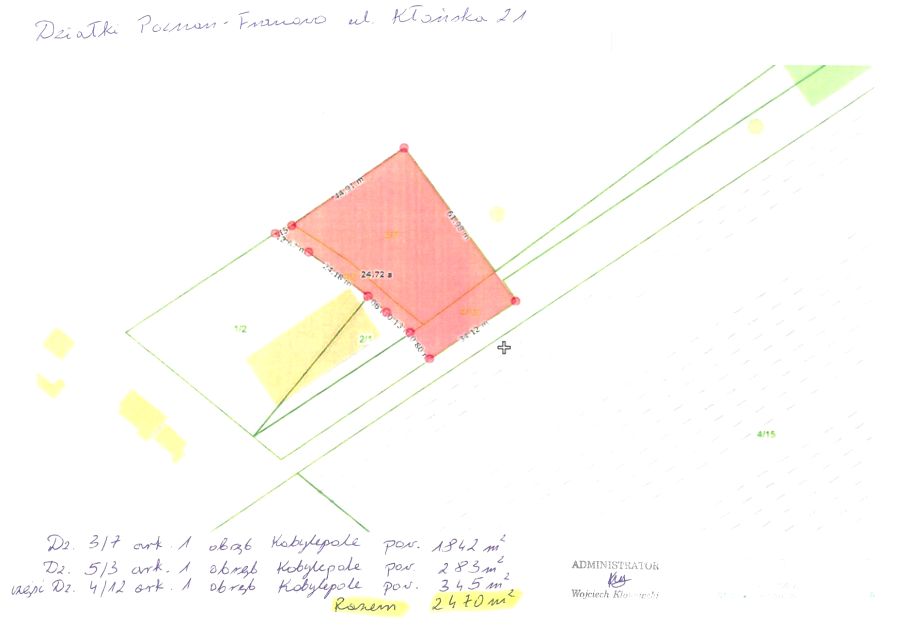 Działki Poznań-Franowo ul. Kłońska 21
44.91 m
61.98 m
3/7
24.72 a
24.18 m
34.12 m
1/2
2/1
4/15
Dz. 3/7 ark. 1 obręb Kobylepole pow. 1842 m²
Dz. 5/3 ark. 1 obręb Kobylepole pow. 283 m²
część Dz. 4/12 ark. 1 obręb Kobylepole pow. 345 m²
Razem 2470 m²
ADMINISTRATOR
Wojciech